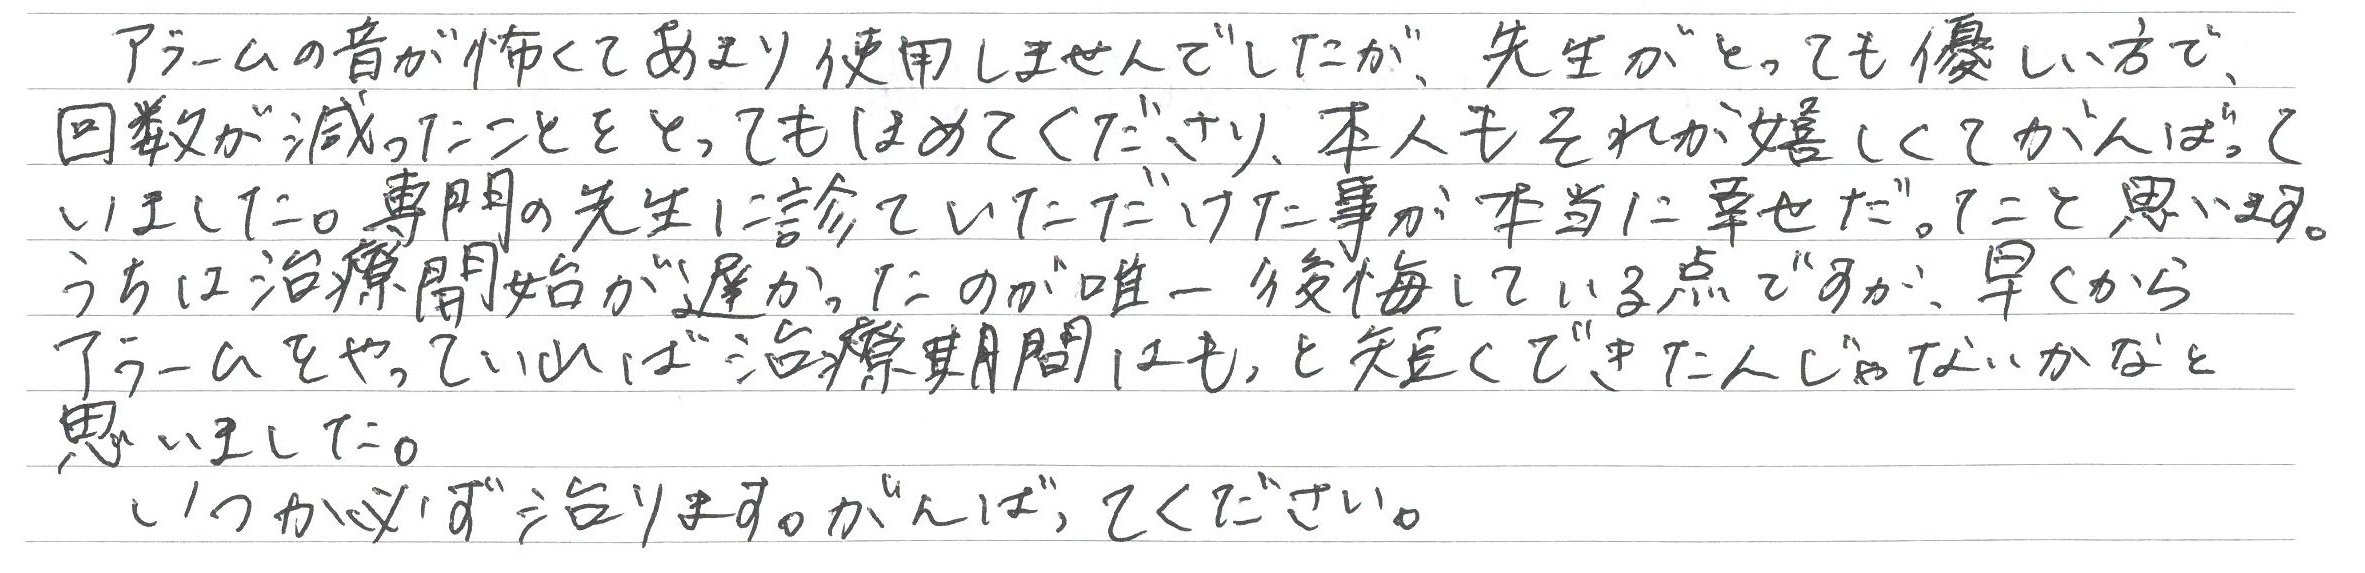 アラームの音が怖くてあまり使用しませんでしたが、先生がとっても優しい方で、
回数が減ったことをとってもほめてくださり、本人もそれが嬉しくてがんばって
いました。専門の先生に診ていただけた事が本当に幸せだったと思います。
うちは治療開始が遅かったのが唯一後悔している点ですが、早くから
アラームをやっていれば治療期間はもっと短くできたんじゃないかなと
思いました。
いつか必ず治ります。がんばってください。